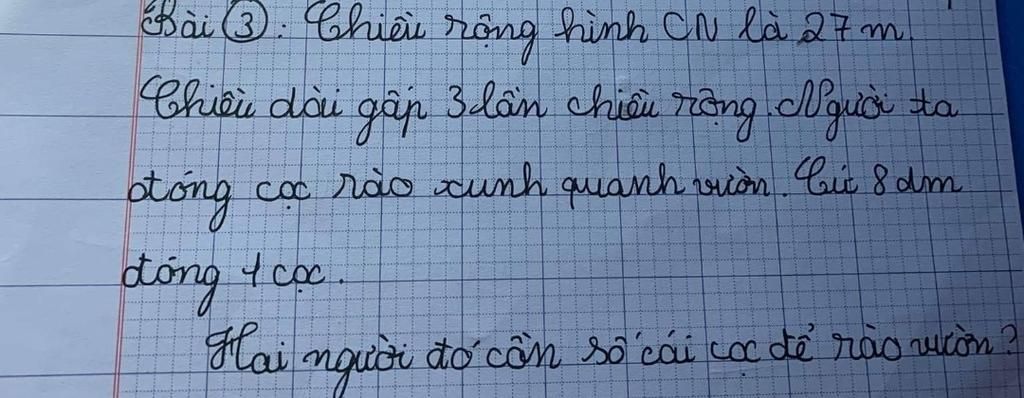 Bài 3: Chiều rộng hình CN là 27 m.
Chiều dài gấp 3 lần chiều rộng. Người ta
đóng cọc rào xunh quanh vườn. Cứ 8 dm
đóng 1 cọc.
Hai người đó cần số cái cọc để rào vườn?